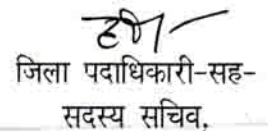 जिला पदाधिकारी-सह-
सदस्य सचिव.